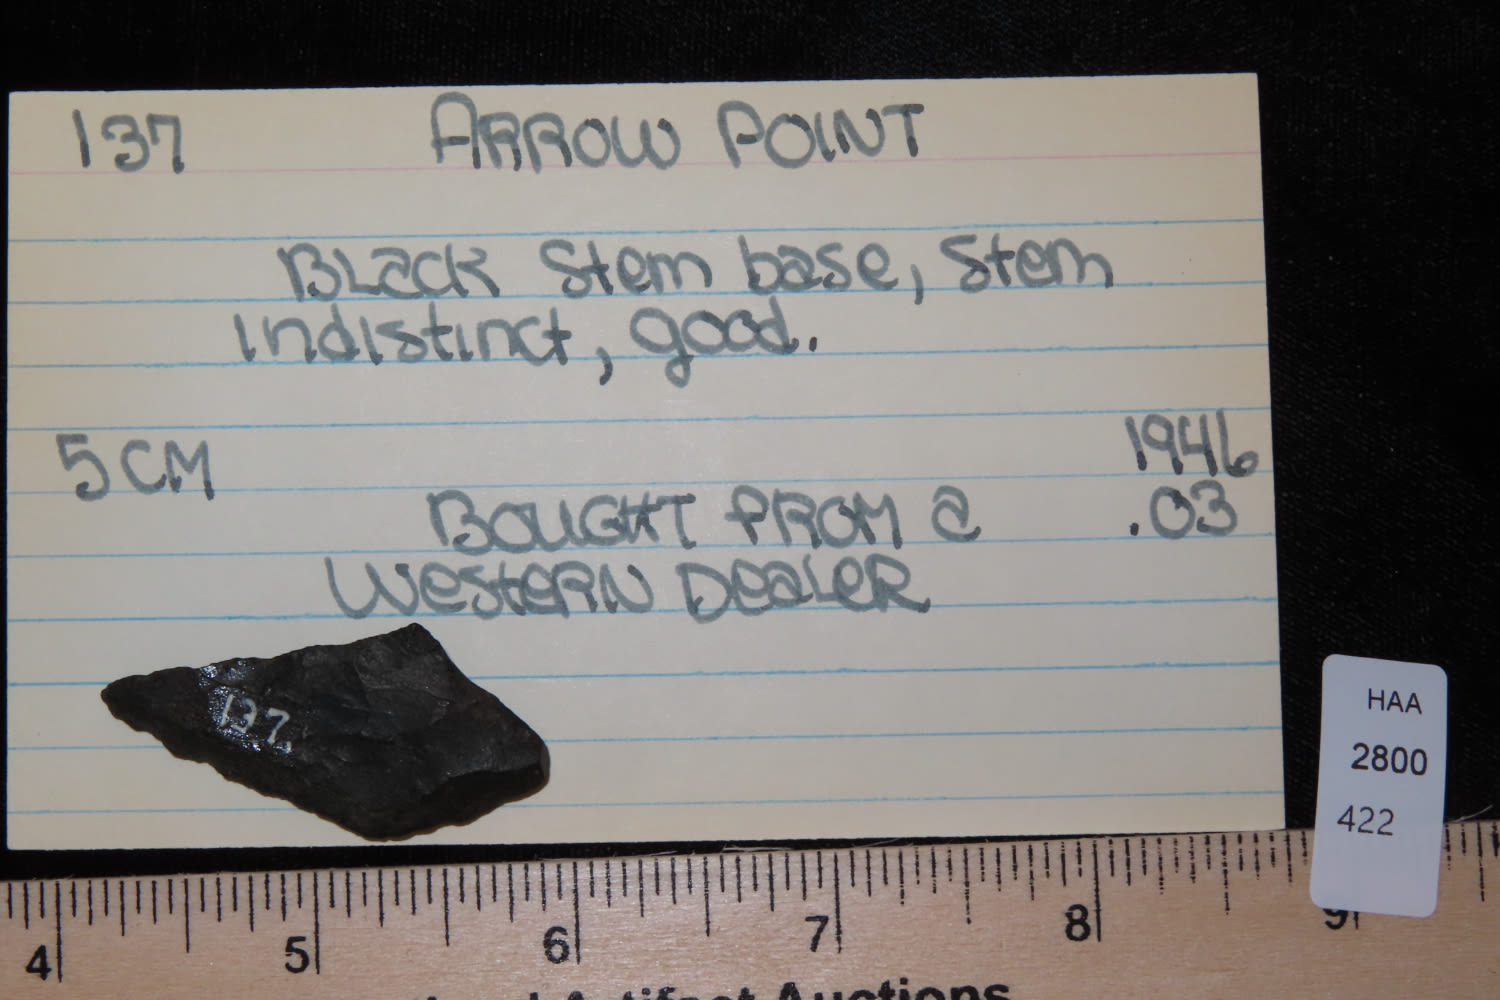 137 ARROW POINT
BLack Stem base, Stem
indistinct, good.
5 CM
1946
BOUGHT FROM a .03
WesteRN DealeR
137
HAA
2800
422
4 5 6 7 8 9
Artifact Auctions